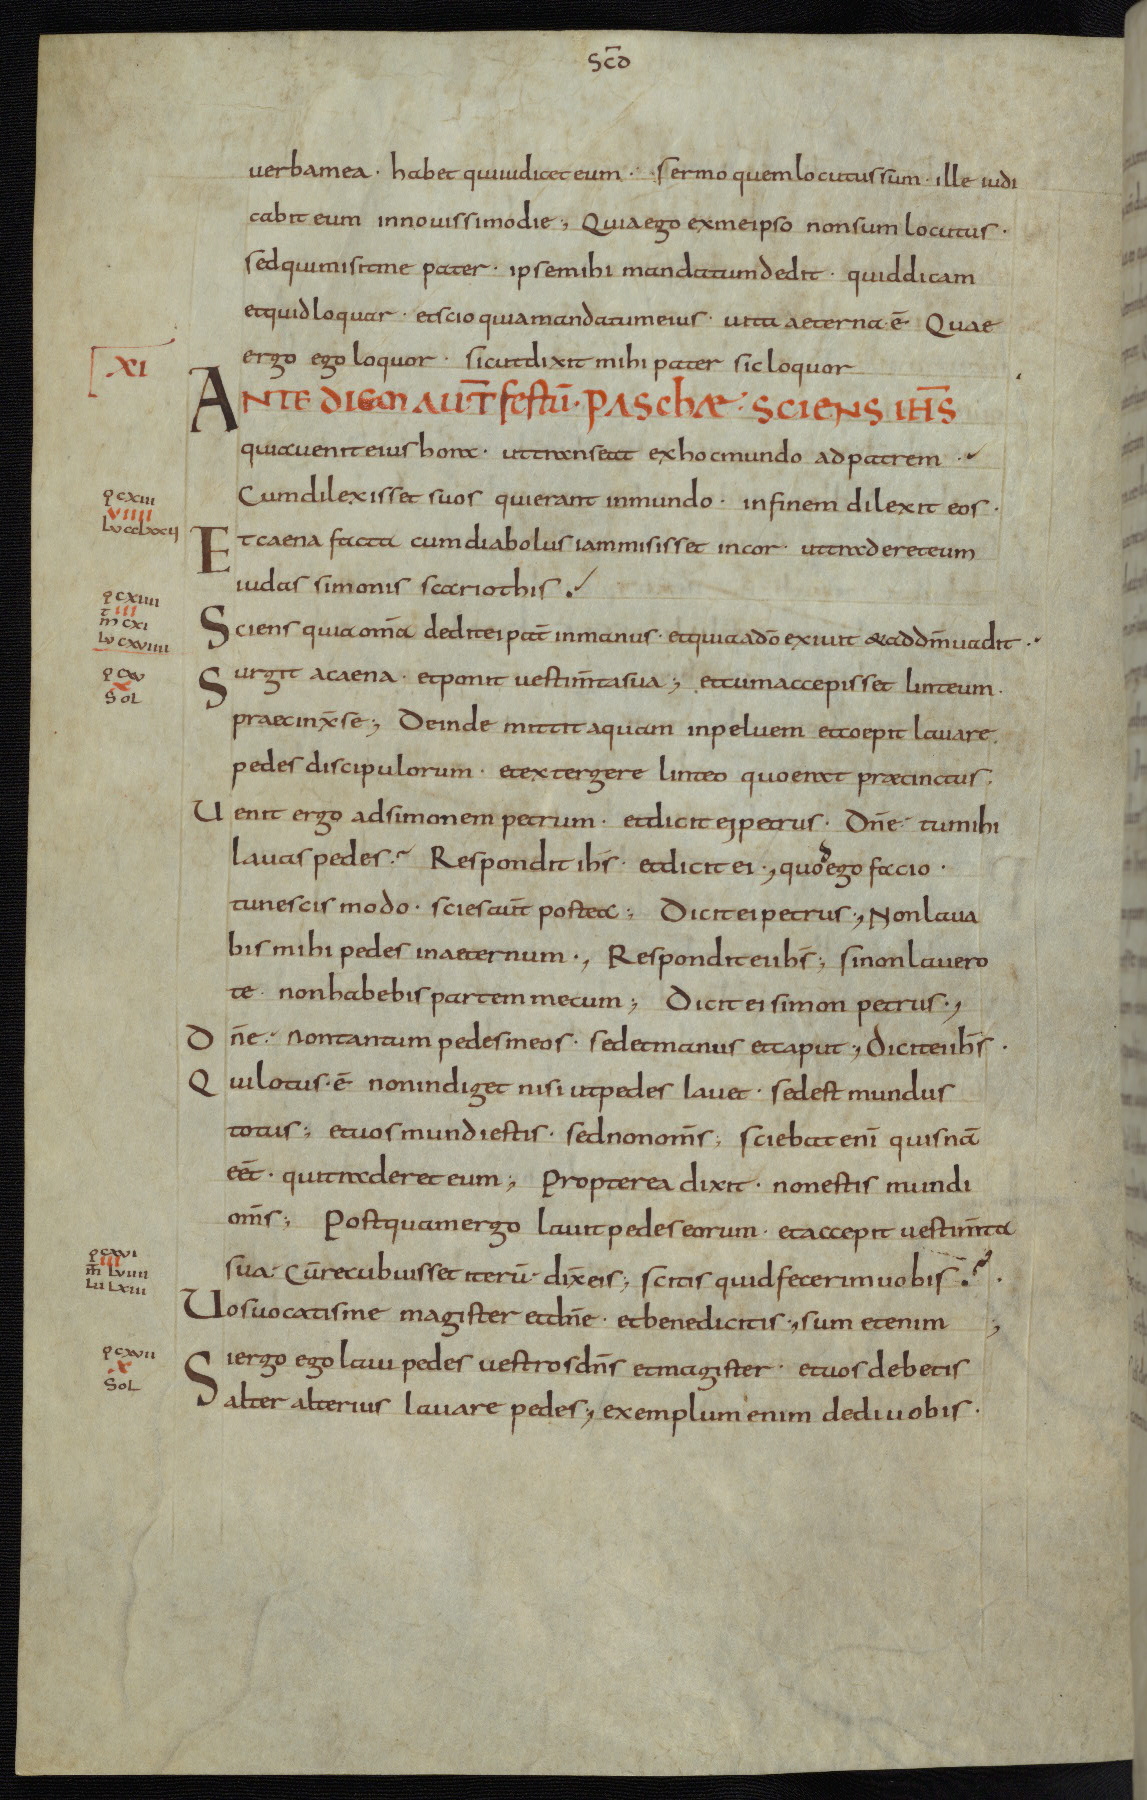 SCD̄
uerbamea · habet quiiudicet eum · sermo quem locutus sum · ille iudi
cabit eum in nouissimo die ; Quia ego ex me ipso non sum locutus ·
sed qui misit me pater · ipse mihi mandatum dedit · quid dicam
et quid loquar · et scio quia mandatum eius · uita aeterna · ē Quae
ergo ego loquor · sicut dixit mihi pater sic loquor
XI
ANTE DIEM AUT̄ festū · PASCHÆ · SCIENS IHS̄
quia uenit eius hora · ut transeat ex hoc mundo ad patrem ·
Cum dilexisset suos qui erant in mundo · in finem dilexit eos ·
ꝗ CXIII
VIIII
Et caena facta cum diabolus iam misisset in cor · ut traderet eum
iudas simonis scariothis ·
ꝗ CXIIII
t III
m̄ CXI
lu CXVIIII
Sciens quia om̄a dedit ei pat̄ in manus · et quia a dō exiuit & ad dm̄ uadit ·
ꝗ CXV
X
SOL
Surgit a caena · et ponit uestim̄ta sua ; et cum accepisset linteum ·
praecinx̄ se ; Deinde mittit aquam in peluem et coepit lauare
pedes discipulorum · et extergere linteo quo erat præcinctus ;
Uenit ergo ad simonem petrum · et dicit ei petrus · Dn̄e · tu mihi
lauas pedes · Respondit ihs̄ · et dicit ei ·, quod ego facio ·
tu nescis modo · scies aut̄ postea ; Dicit ei petrus ·, Non laua
bis mihi pedes in aeternum ·, Respondit ei ihs̄ ; si non lauero
te · non habebis partem mecum ; Dicit ei simon petrus ·,
Dn̄e · non tantum pedes meos · sed et manus et caput ·, dicit ei ihs̄ ·
Qui lotus · ē non indiget nisi ut pedes lauet · sed est mundus
totus ; et uos mundi estis · sed non om̄s ; sciebat enī quisnā
eēt · qui traderet eum ; Propterea dixit · non estis mundi
om̄s ; Postquam ergo lauit pedes eorum · et accepit uestim̄ta
ꝗ CXVI
III
m̄ LVIIII
Lu LXIII
sua · Cū recubuisset iterū · dix̄ eis ; scitis quid fecerim uobis ·
Uos uocatis me magister et dn̄e · et bene dicitis ·, sum etenim ;
ꝗ CXVII
X
SOL
Si ergo ego laui pedes uestros dn̄s et magister · et uos debetis
alter alterius lauare pedes ·, exemplum enim dedi uobis ·